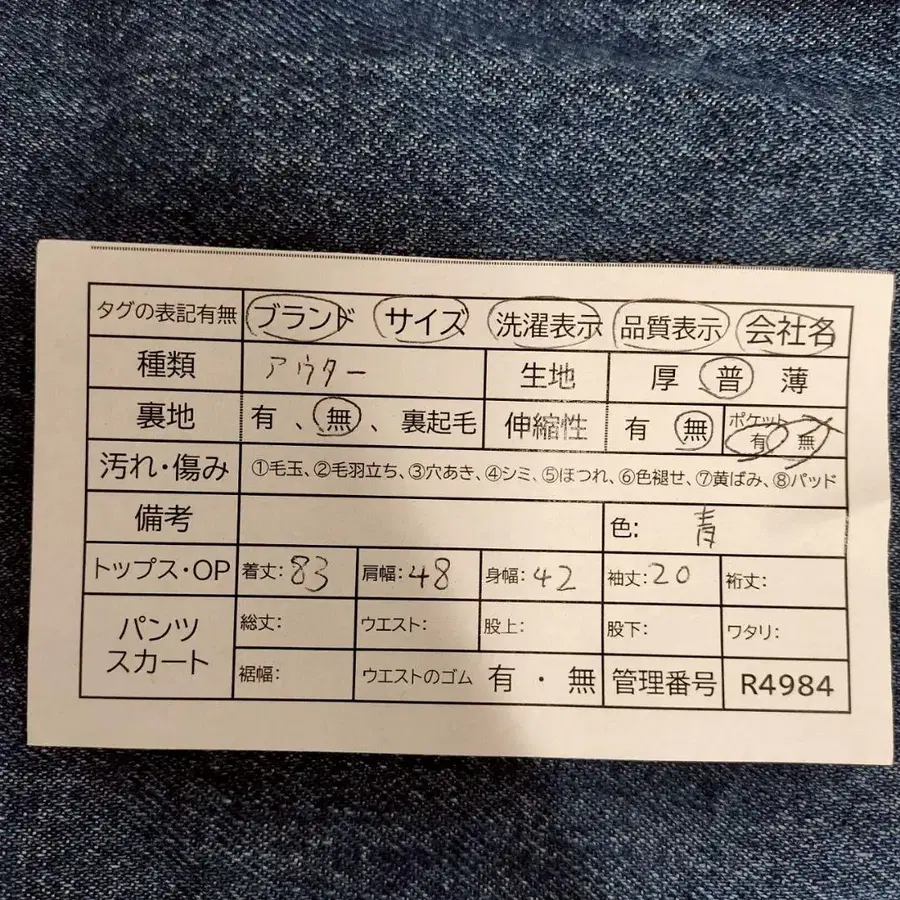 タグの表記有無 ブランド サイズ 洗濯表示 品質表示 会社名
種類 アウター 生地 厚 普 薄
裏地 有、無、裏起毛 伸縮性 有 無 ポケット 有 無
汚れ・傷み ①毛玉、②毛羽立ち、③穴あき、④シミ、⑤ほつれ、⑥色褪せ、⑦黄ばみ、⑧パッド
備考 色: 青
トップス・OP 着丈:83 肩幅:48 身幅:42 袖丈:20 裄丈:
パンツ スカート 総丈: ウエスト: 股上: 股下: ワタリ:
裾幅: ウエストのゴム 有・無 管理番号 R4984